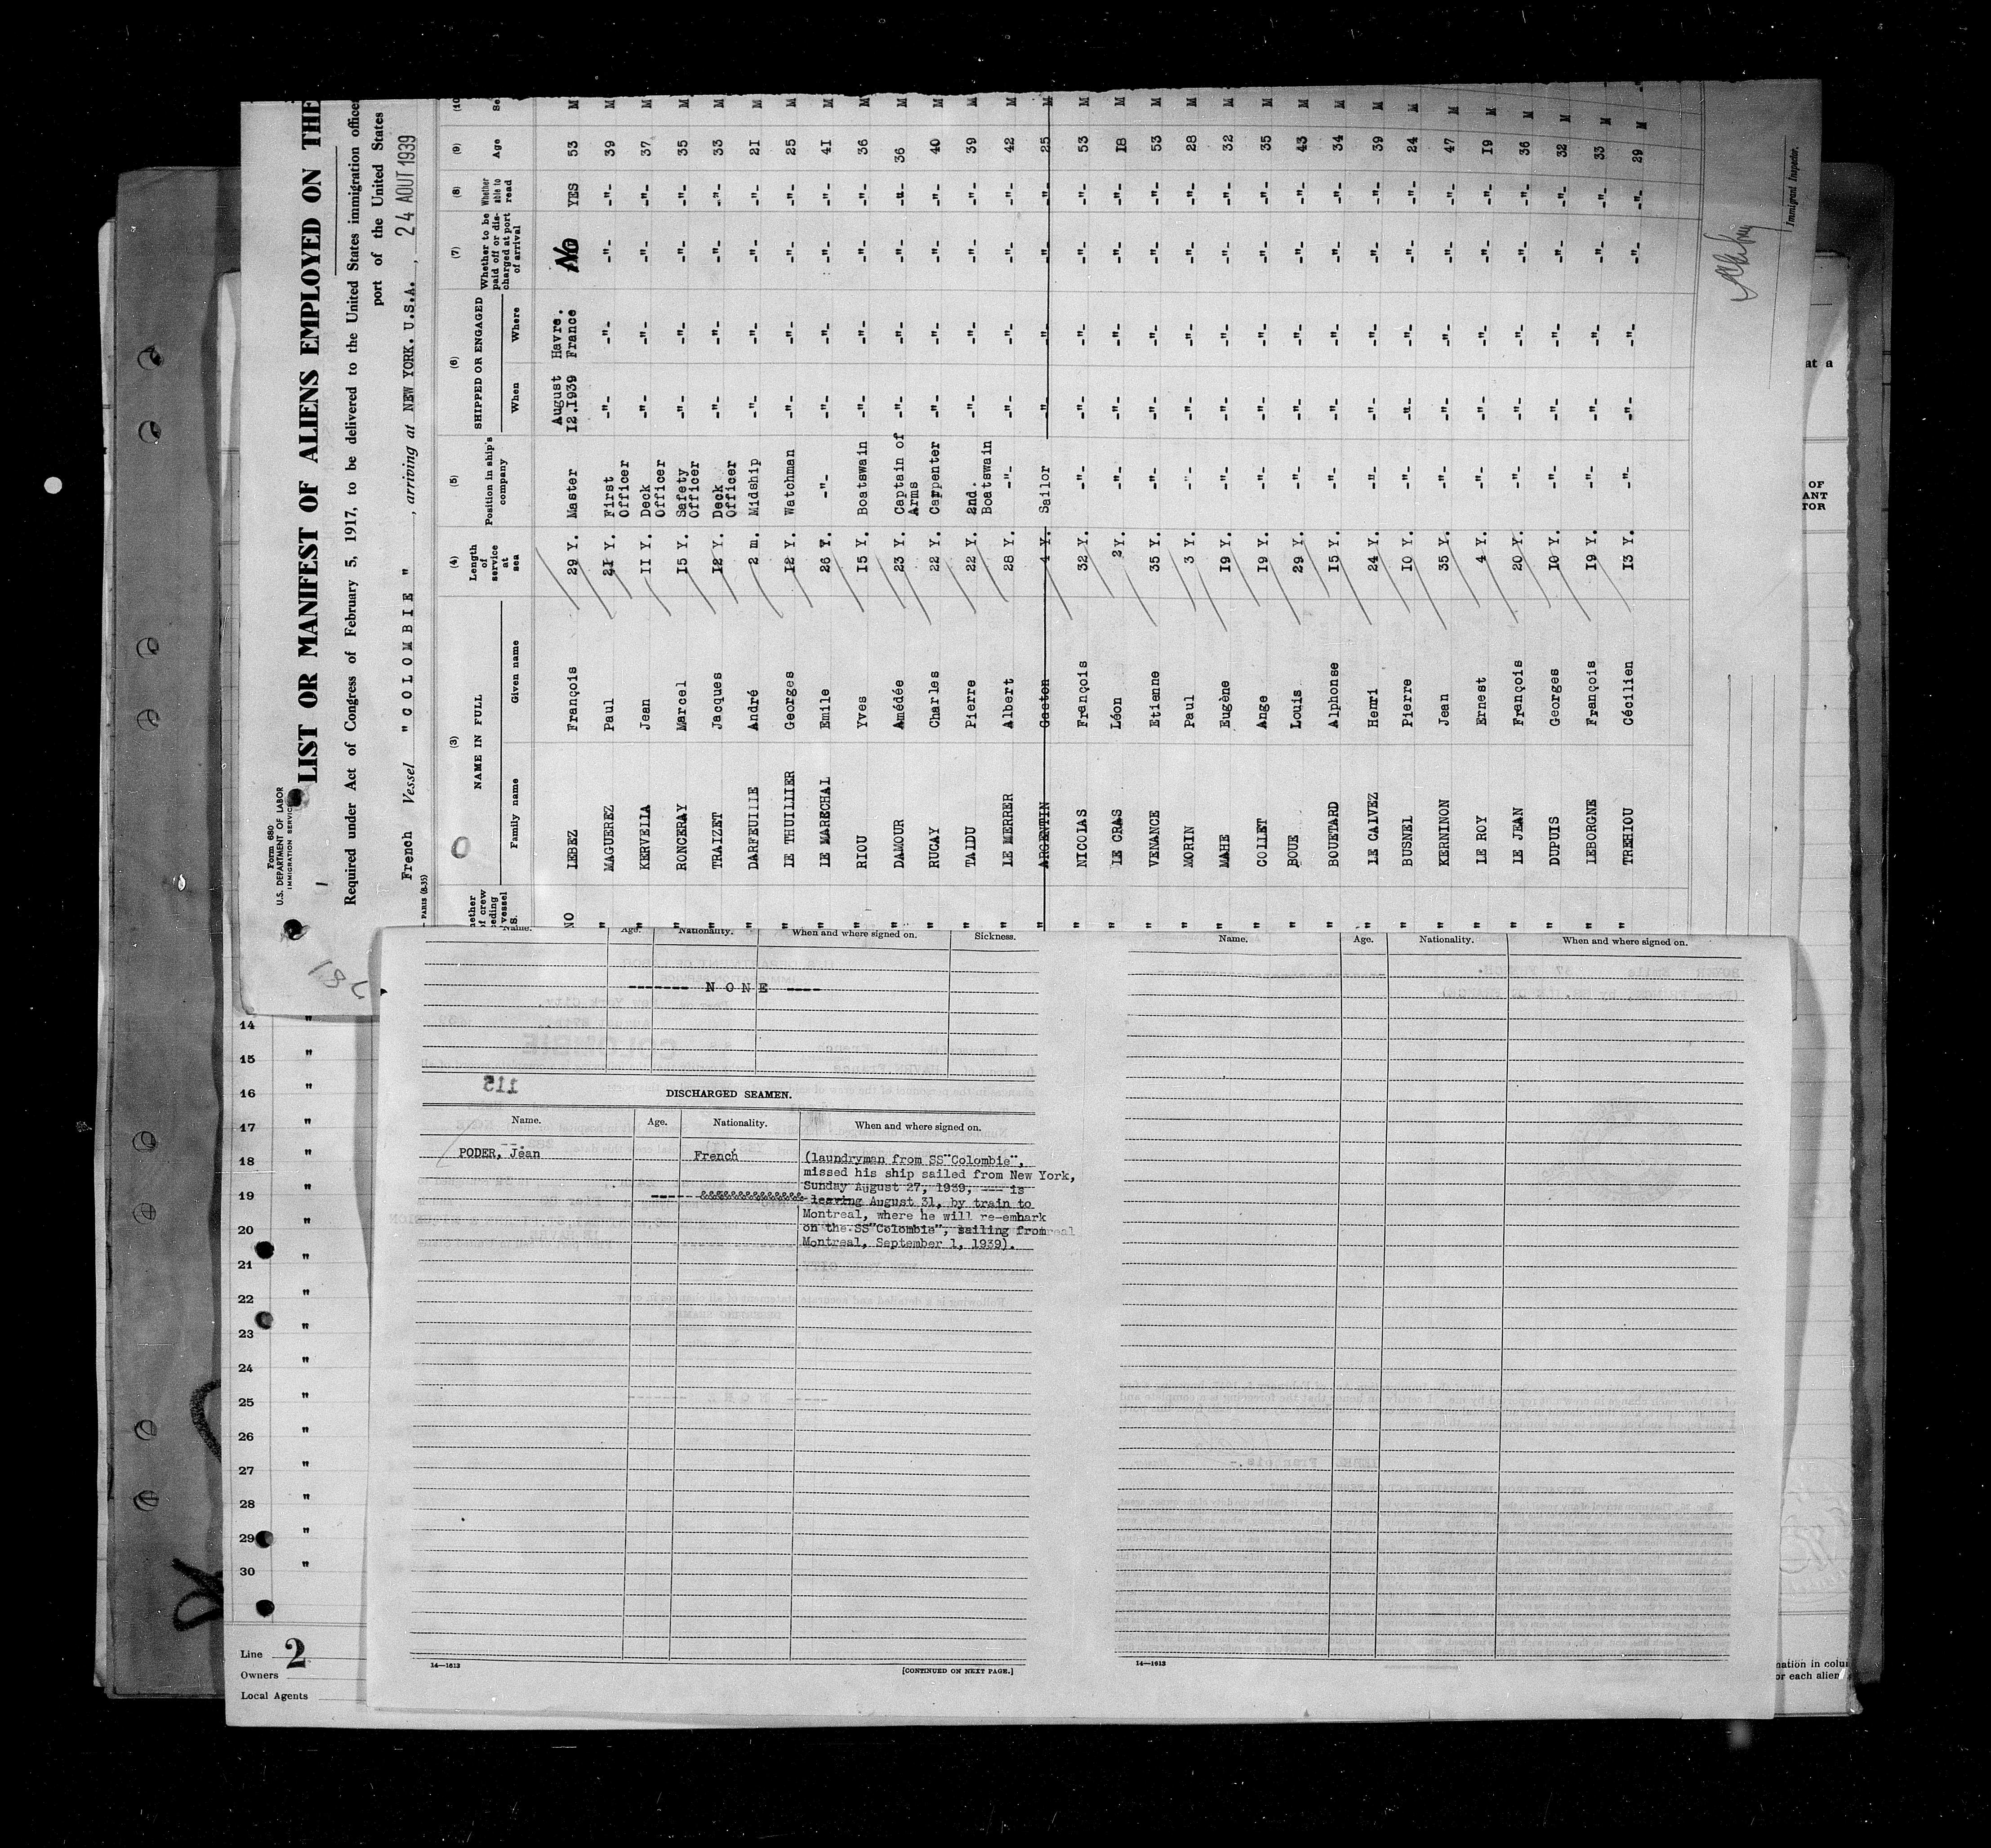 Form 680
U.S. DEPARTMENT OF LABOR
IMMIGRATION SERVICE
LIST OR MANIFEST OF ALIENS EMPLOYED ON THE
Required under Act of Congress of February 5, 1917, to be delivered to the United States immigration officer
port of the United States
French Vessel "COLOMBIE", arriving at NEW YORK. U.S.A., 24 AOUT 1939
PARIS (8-35)
(3) (4) (5) (6) (7) (8) (9) (10
NAME IN FULL
Family name Given name
Length of service at sea
Position in ship's company
SHIPPED OR ENGAGED
When Where
Whether to be paid off or discharged at port of arrival
Whether able to read
Age
Se
NO LEBEZ François 29 Y. Master August 12.1939 Havre. France No YES 53 M
" MAGUEREZ Paul 21 Y. First Officer -"- -"- -"- -"- 39 M
" KERVELLA Jean 11 Y. Deck Officer -"- -"- -"- -"- 37 M
" RONCERAY Marcel 15 Y. Safety Officer -"- -"- -"- -"- 35 M
" TRAIZET Jacques 12 Y. Deck Officer -"- -"- -"- -"- 33 M
" DARFEUILLE André 2 m. Midship -"- -"- -"- -"- 21 M
" LE THUILLIER Georges 12 Y. Watchman -"- -"- -"- -"- 25 M
" LE MARECHAL Emile 26 Y. -"- -"- -"- -"- -"- 41 M
" RIOU Yves 15 Y. Boatswain -"- -"- -"- -"- 36 M
" DAMOUR Amédée 23 Y. Captain of Arms -"- -"- -"- -"- 36 M
" RUCAY Charles 22 Y. Carpenter -"- -"- -"- -"- 40 M
" TAIDU Pierre 22 Y. 2nd. Boatswain -"- -"- -"- -"- 39 M
" LE MERRER Albert 28 Y. -"- -"- -"- -"- -"- 42 M
" ARGENTIN Gaston 4 Y. Sailor -"- -"- -"- -"- 25 M
" NICOLAS François 32 Y. -"- -"- -"- -"- -"- 53 M
" LE CRAS Léon 2 Y. -"- -"- -"- -"- -"- 18 M
" VENANCE Etienne 35 Y. -"- -"- -"- -"- -"- 53 M
" MORIN Paul 3 Y. -"- -"- -"- -"- -"- 28 M
" MAHE Eugène 19 Y. -"- -"- -"- -"- -"- 32 M
" COLLET Ange 19 Y. -"- -"- -"- -"- -"- 35 M
" BOUE Louis 29 Y. -"- -"- -"- -"- -"- 43 M
" BOUETARD Alphonse 15 Y. -"- -"- -"- -"- -"- 34 M
" LE CALVEZ Henri 24 Y. -"- -"- -"- -"- -"- 39 M
" BUSNEL Pierre 10 Y. -"- -"- -"- -"- -"- 24 M
" KERNINON Jean 35 Y. -"- -"- -"- -"- -"- 47 M
" LE ROY Ernest 4 Y. -"- -"- -"- -"- -"- 19 M
" LE JEAN François 20 Y. -"- -"- -"- -"- -"- 36 M
" DUPUIS Georges 10 Y. -"- -"- -"- -"- -"- 32 M
" LEBORGNE François 19 Y. -"- -"- -"- -"- -"- 33 M
" TREHIOU Cécilien 13 Y. -"- -"- -"- -"- -"- 29 M
Immigrant Inspector.
Name. Age. Nationality. When and where signed on. Sickness.
------- N O N E ----
115
DISCHARGED SEAMEN.
Name. Age. Nationality. When and where signed on.
PODER, Jean French (laundryman from SS"Colombie",
missed his ship sailed from New York,
Sunday August 27, 1939, --- is
leaving August 31, by train to
Montreal, where he will re-embark
on the SS"Colombie", sailing from
Montreal, September 1, 1939).
14—1613
[CONTINUED ON NEXT PAGE.]
Name. Age. Nationality. When and where signed on.
14—1613
14 "
15 "
16 "
17 "
18 "
19 "
20 "
21 "
22 "
23 "
24 "
25 "
26 "
27 "
28 "
29 "
30 "
Line 2
Owners
Local Agents
at a
OF
ANT
TOR
mation in colu
or each alien